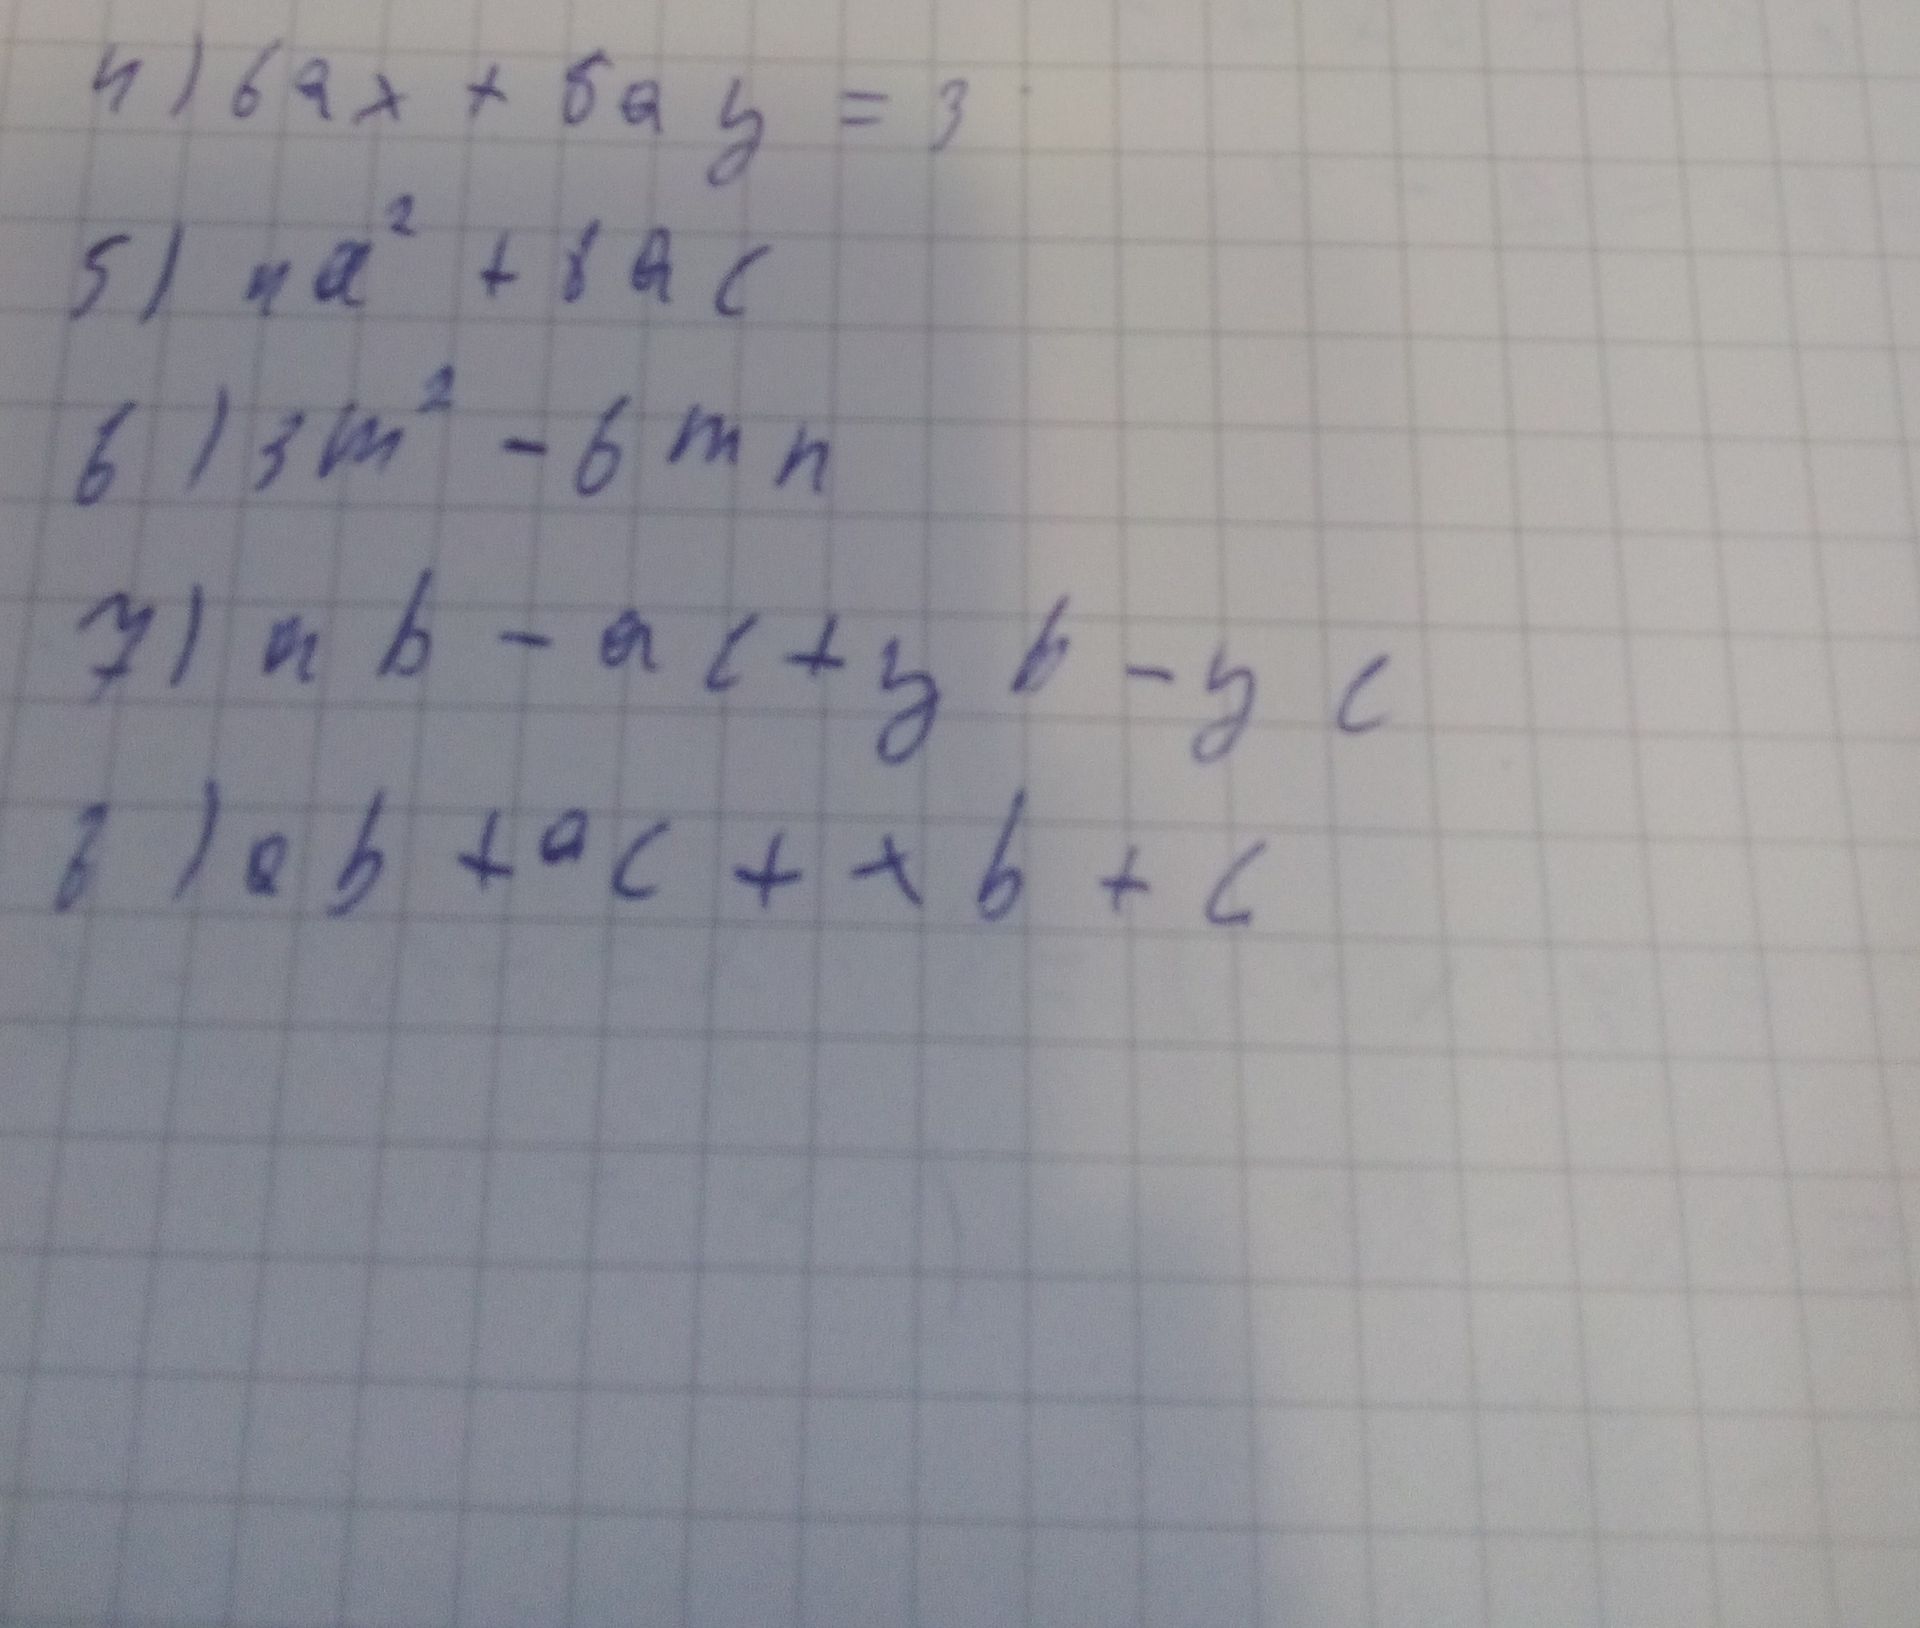 4) 6ax + 5ay = 3
5) 4a² + 8ac
6) 3m² - 6mn
7) ab - ac + yb - yc
8) ab + ac + xb + c